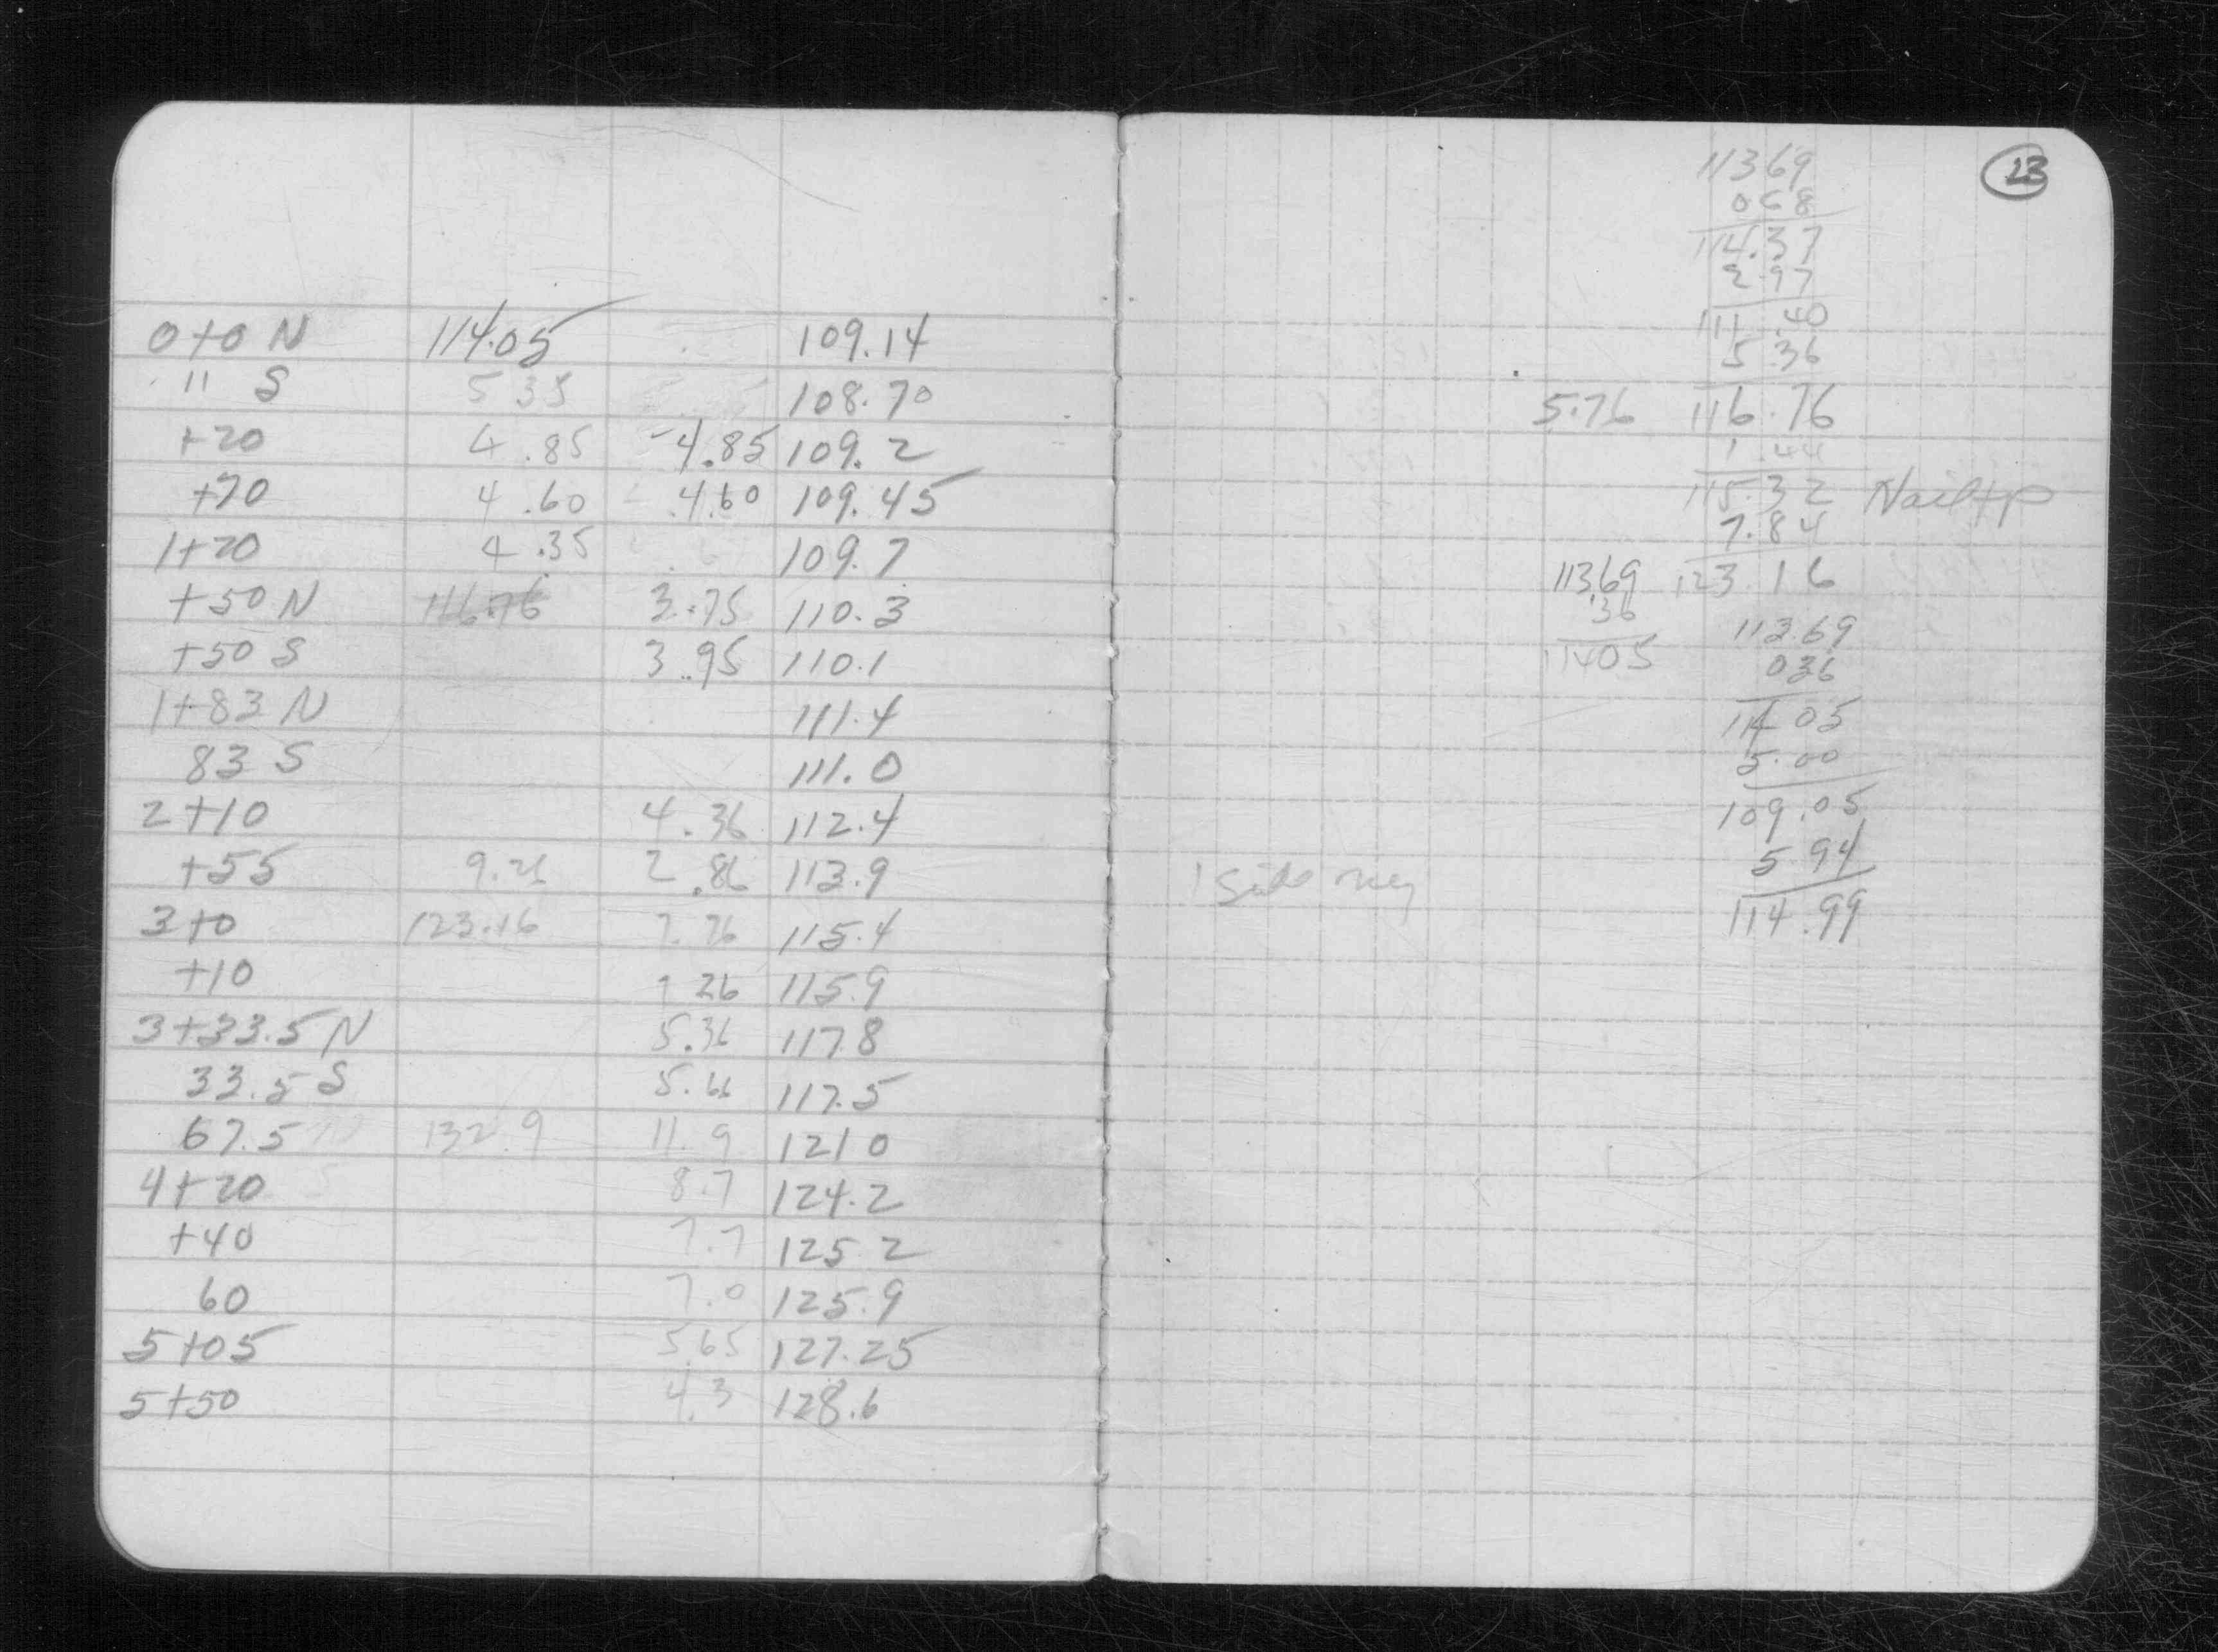 0+0 N 114.05 109.14
" S 5 35 108.70
+20 4.85 -4.85 109.2
+70 4.60 4.60 109.45
1+20 4.35 109.7
+50 N 116.76 3.75 110.3
+50 S 3.95 110.1
1+83 N 111.4
83 S 111.0
2+10 4.36 112.4
+55 9.26 2.86 113.9
3+0 123.16 7.76 115.4
+10 7 26 115.9
3+33.5 N 5.36 117.8
33.5 S 5.66 117.5
67.5 132.9 11.9 121.0
4+20 8.7 124.2
+40 7.7 125.2
60 7.0 125.9
5+05 5.65 127.25
5+50 4.3 128.6
23
113 69
0 68
114.37
2.97
111.40
5.36
5.76 116.76
1.44
115.32 Nail tp
7.84
113.69 123.16
.36
114 05
113.69
0 36
114 05
5.00
109.05
5.94
114.99
Side